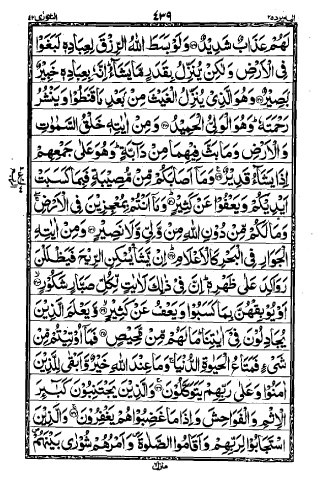 الیہ یرد ۲۵ ۴۳۹ الشوری ۴۲
لَهُمْ عَذَابٌ شَدِيْدٌ ۞ وَلَوْ بَسَطَ اللّٰهُ الرِّزْقَ لِعِبَادِهٖ لَبَغَوْا
فِى الْاَرْضِ وَلٰكِنْ يُّنَزِّلُ بِقَدَرٍ مَّا يَشَآءُ ؕ اِنَّهٗ بِعِبَادِهٖ خَبِيْرٌۢ
بَصِيْرٌ ۞ وَهُوَ الَّذِىْ يُنَزِّلُ الْغَيْثَ مِنْۢ بَعْدِ مَا قَنَطُوْا وَيَنْشُرُ
رَحْمَتَهٗ ؕ وَهُوَ الْوَلِىُّ الْحَمِيْدُ ۞ وَمِنْ اٰيٰتِهٖ خَلْقُ السَّمٰوٰتِ
وَالْاَرْضِ وَمَا بَثَّ فِيْهِمَا مِنْ دَآبَّةٍ ؕ وَهُوَ عَلٰى جَمْعِهِمْ
اِذَا يَشَآءُ قَدِيْرٌ ۞ وَمَاۤ اَصَابَكُمْ مِّنْ مُّصِيْبَةٍ فَبِمَا كَسَبَتْ
اَيْدِيْكُمْ وَيَعْفُوْا عَنْ كَثِيْرٍ ۞ وَمَاۤ اَنْتُمْ بِمُعْجِزِيْنَ فِى الْاَرْضِ ۚ
وَمَا لَكُمْ مِّنْ دُوْنِ اللّٰهِ مِنْ وَّلِىٍّ وَّلَا نَصِيْرٍ ۞ وَمِنْ اٰيٰتِهِ
الْجَوَارِ فِى الْبَحْرِ كَالْاَعْلَامِ ۞ اِنْ يَّشَاْ يُسْكِنِ الرِّيْحَ فَيَظْلَلْنَ
رَوَاكِدَ عَلٰى ظَهْرِهٖ ؕ اِنَّ فِىْ ذٰلِكَ لَاٰيٰتٍ لِّكُلِّ صَبَّارٍ شَكُوْرٍ ۞
اَوْ يُوْبِقْهُنَّ بِمَا كَسَبُوْا وَيَعْفُ عَنْ كَثِيْرٍ ۞ وَّيَعْلَمَ الَّذِيْنَ
يُجَادِلُوْنَ فِىْۤ اٰيٰتِنَا ؕ مَا لَهُمْ مِّنْ مَّحِيْصٍ ۞ فَمَاۤ اُوْتِيْتُمْ مِّنْ
شَىْءٍ فَمَتَاعُ الْحَيٰوةِ الدُّنْيَا ۚ وَمَا عِنْدَ اللّٰهِ خَيْرٌ وَّاَبْقٰى لِلَّذِيْنَ
اٰمَنُوْا وَعَلٰى رَبِّهِمْ يَتَوَكَّلُوْنَ ۞ وَالَّذِيْنَ يَجْتَنِبُوْنَ كَبٰٓئِرَ
الْاِثْمِ وَالْفَوَاحِشَ وَاِذَا مَا غَضِبُوْا هُمْ يَغْفِرُوْنَ ۞ وَالَّذِيْنَ
اسْتَجَابُوْا لِرَبِّهِمْ وَاَقَامُوا الصَّلٰوةَ ۪ وَاَمْرُهُمْ شُوْرٰى بَيْنَهُمْ ۪